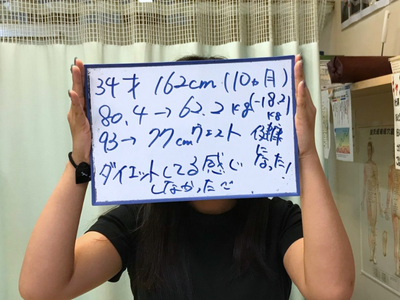 34才 162cm (10ヵ月)
80.4→62.2kg (-18.2)kg
93→77cmウェスト 健康になった!
ダイエットしてる感じ
しなかったで